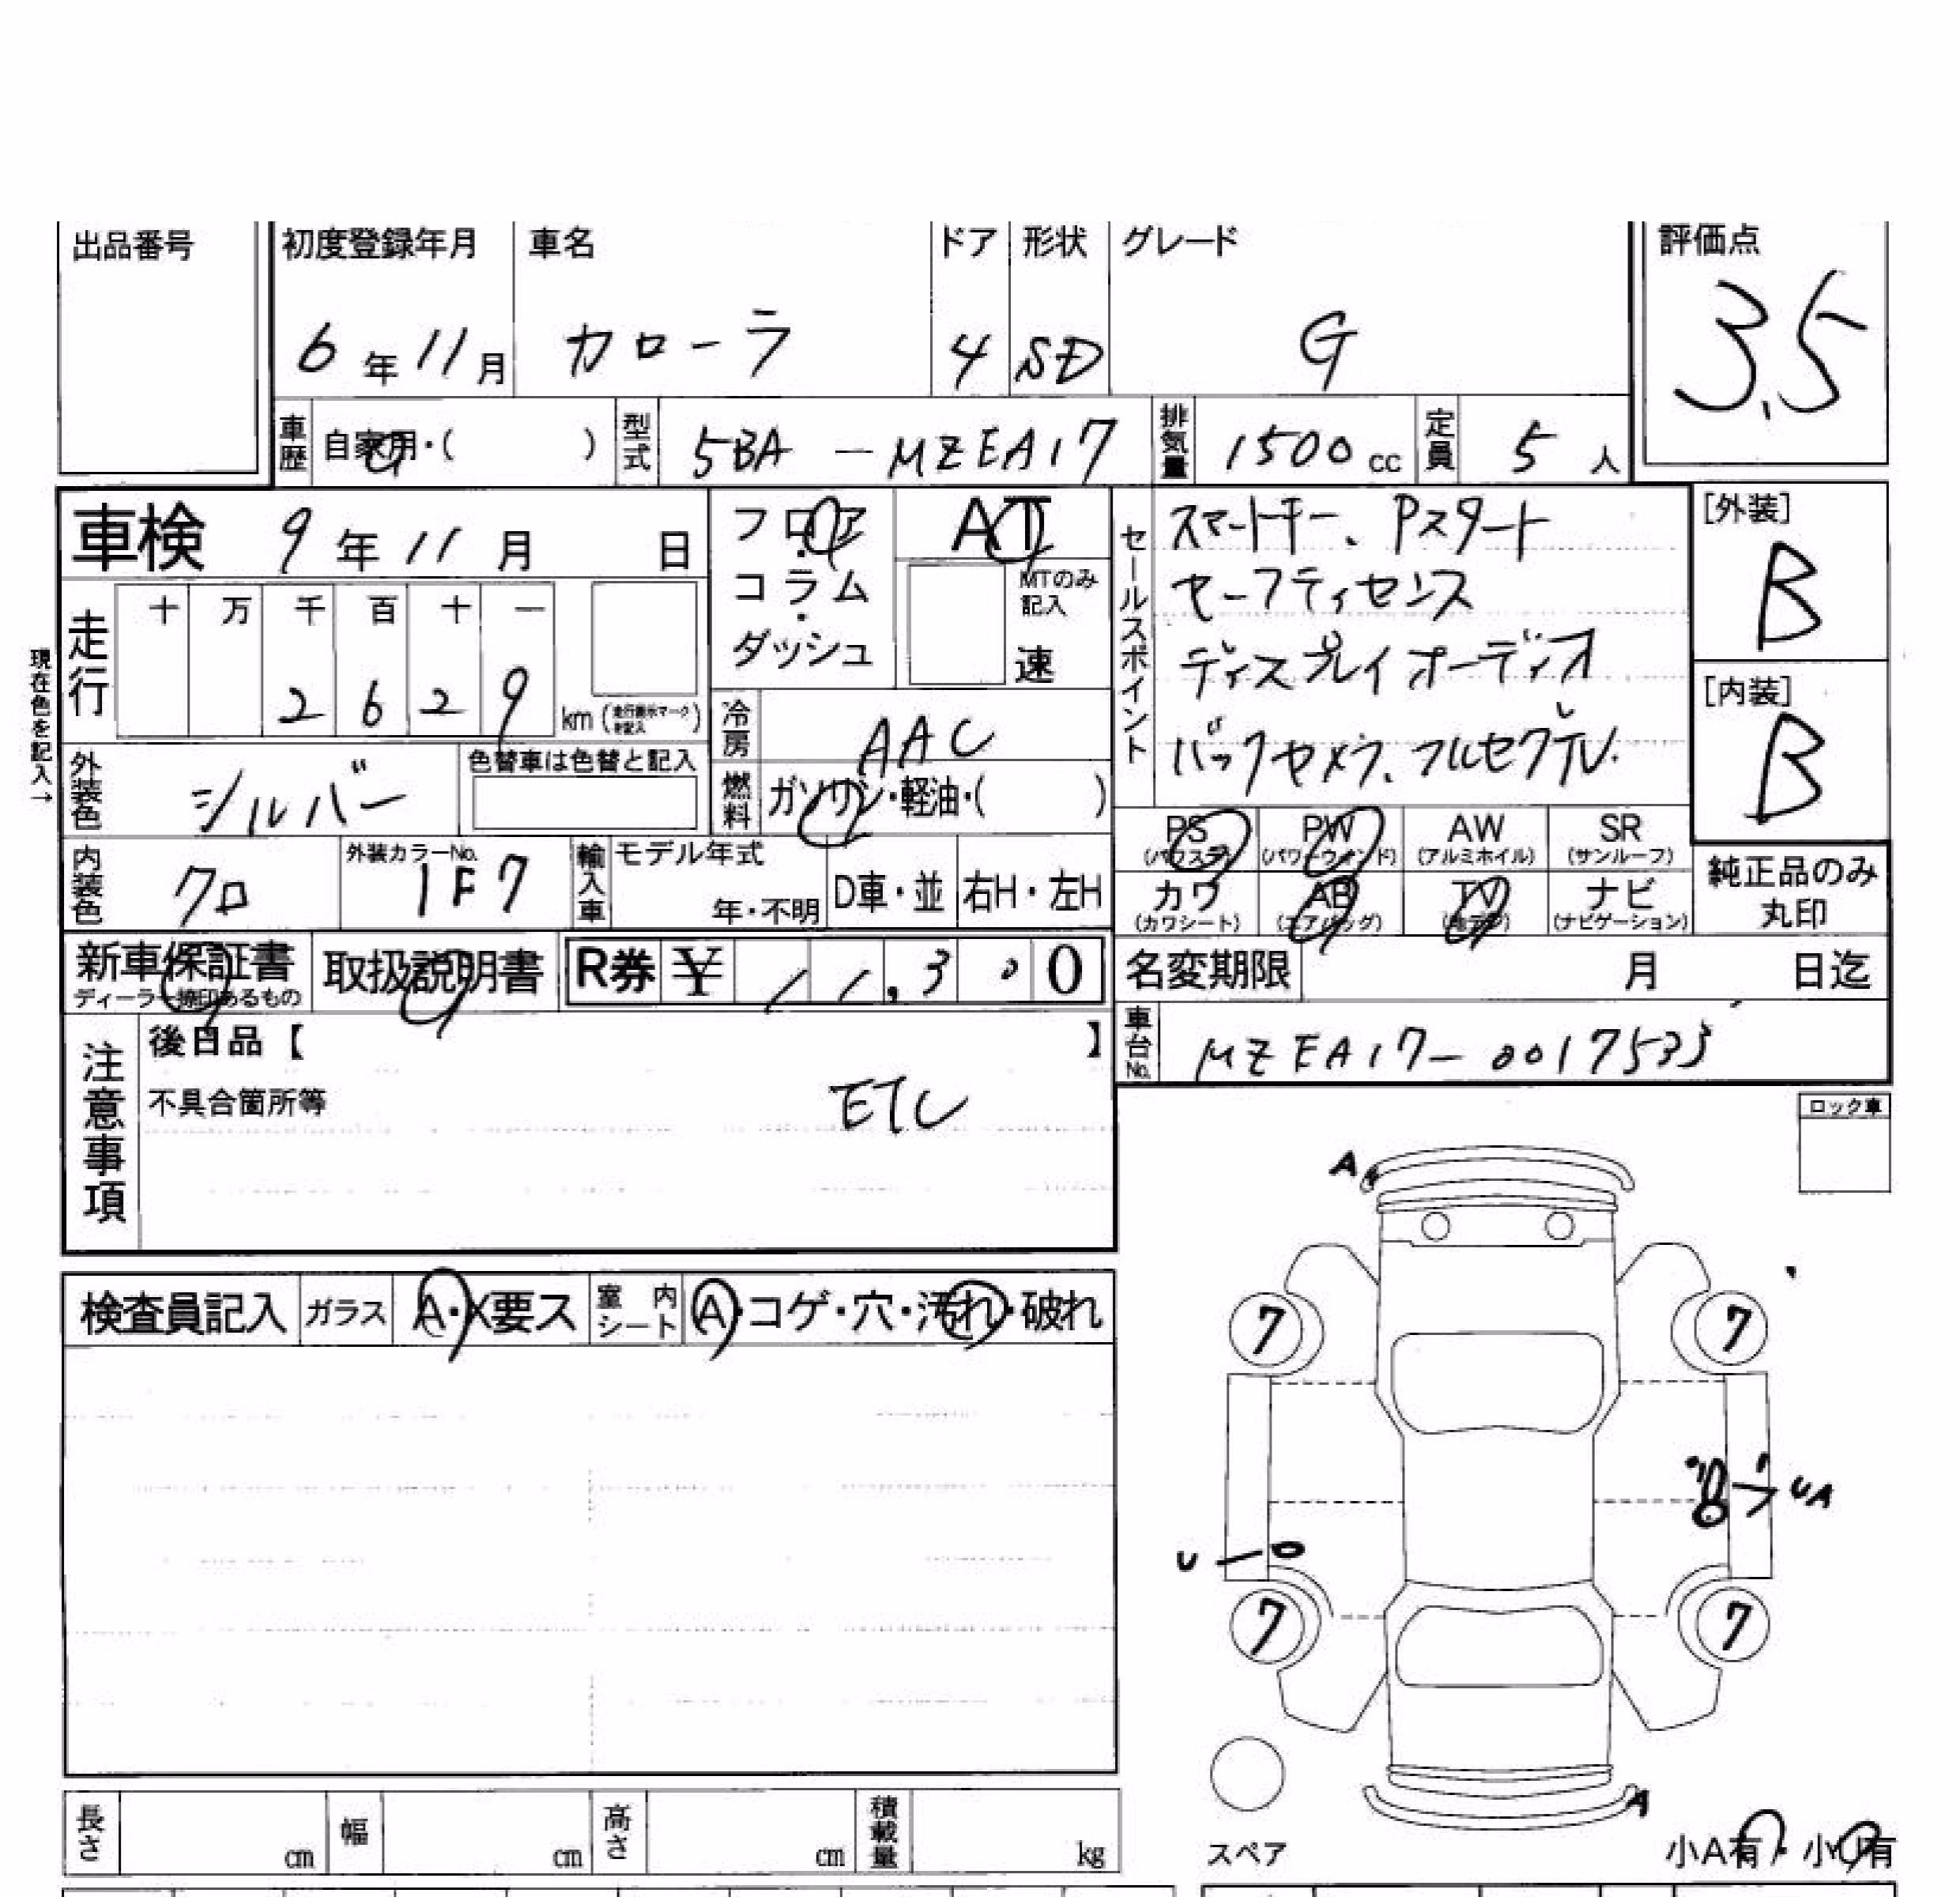 出品番号
初度登録年月 車名 ドア 形状 グレード 評価点
6年11月 カローラ 4 SD G 3.5
車歴 自家用・( ) 型式 5BA-MZEA17 排気量 1500cc 定員 5人
車検 9年11月 日
フロア・コラム・ダッシュ
AT
MTのみ記入
速
セールスポイント
スマートキー、Pスタート
セーフティセンス
ディスプレイオーディオ
バックカメラ、フルセグTV.
[外装]
B
[内装]
B
現在色を記入→
走行
十 万 千 百 十 一
2 6 2 9 km (走行表示マークを記入)
冷房 AAC
外装色 シルバー
色替車は色替と記入
燃料 ガソリン・軽油・( )
内装色 クロ 外装カラーNo. 1F7
輸入車 モデル年式 年・不明 D車・並 右H・左H
PS (パワステ) PW (パワーウィンド) AW (アルミホイル) SR (サンルーフ)
カワ (カワシート) AB (エアバッグ) TV (地デジ) ナビ (ナビゲーション)
純正品のみ丸印
新車保証書 ディーラー捺印あるもの 取扱説明書 R券 ¥ 11,300
名変期限 月 日迄
車台No. MZEA17-0017533
注意事項
後日品【 】
不具合箇所等
ETC
ロック車
検査員記入 ガラス A・X要ス 室内シート A・コゲ・穴・汚れ・破れ
A
7 7
UA
U
7 7
A
スペア
小A有・小U有
長さ cm 幅 cm 高さ cm 積載量 kg